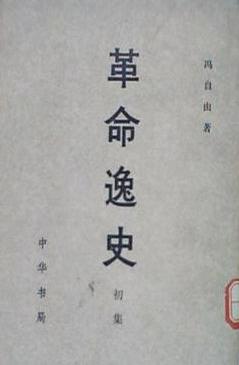 冯自由著
革命逸史
初集
中华书局